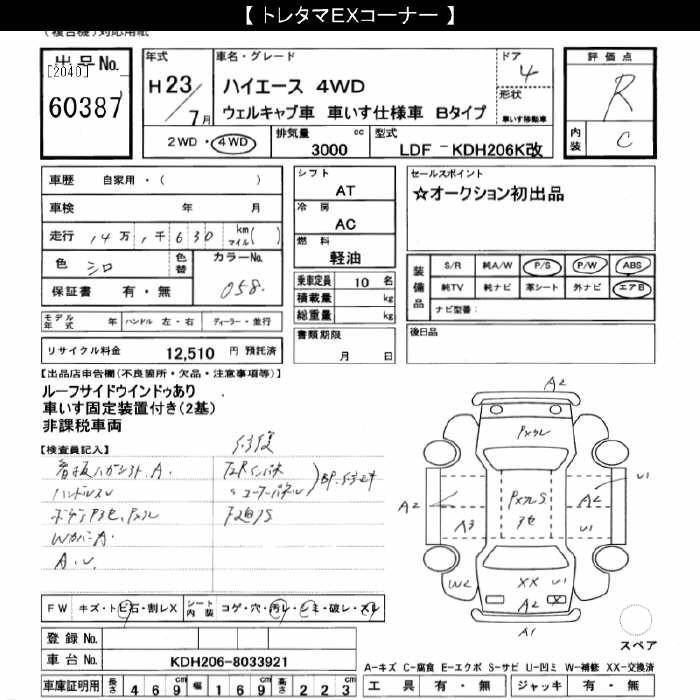 【 トレタマEXコーナー 】
(複合機)対応用紙
出品No.
[2040]
60387
年式
H23/7月
車名・グレード
ハイエース 4WD
ウェルキャブ車 車いす仕様車 Bタイプ
ドア
4
形状
車いす移動車
評価点
R
内装
C
2WD・4WD
排気量 3000 cc
型式 LDF -KDH206K改
車歴 自家用・( )
車検 年 月
走行 14万 1千 630 km マイル( )
色 シロ 色替
カラーNo. 058.
保証書 有・無
シフト
AT
冷房
AC
燃料
軽油
乗車定員 10 名
積載量 kg
総重量 kg
セールスポイント
☆オークション初出品
装備品
S/R 純A/W P/S P/W ABS
純TV 純ナビ 革シート 外ナビ エアB
ナビ型番:
モデル年式 年 ハンドル 左・右 ディーラー・並行
リサイクル料金 12,510 円 預託済
書類期限
月 日
後日品
【出品店申告欄(不良箇所・欠品・注意事項等)】
ルーフサイドウインドゥあり
車いす固定装置付き(2基)
非課税車両
【検査員記入】
修復
ハンドルスレ
Wカバー A.
A.U.
A2
A2
A3
A2
U1
U1
W2
XX U1
A2 X
A1
FW キズ・トビ石・割レX
シート内装 コゲ・穴・汚レ・シミ・破レ・スレ
登録No.
車台No. KDH206-8033921
スペア
A-キズ C-腐食 E-エクボ S-サビ U-凹ミ W-補修 XX-交換済
車庫証明用 長さ 469cm 幅 169cm 高さ 223cm
工具 有・無 ジャッキ 有・無